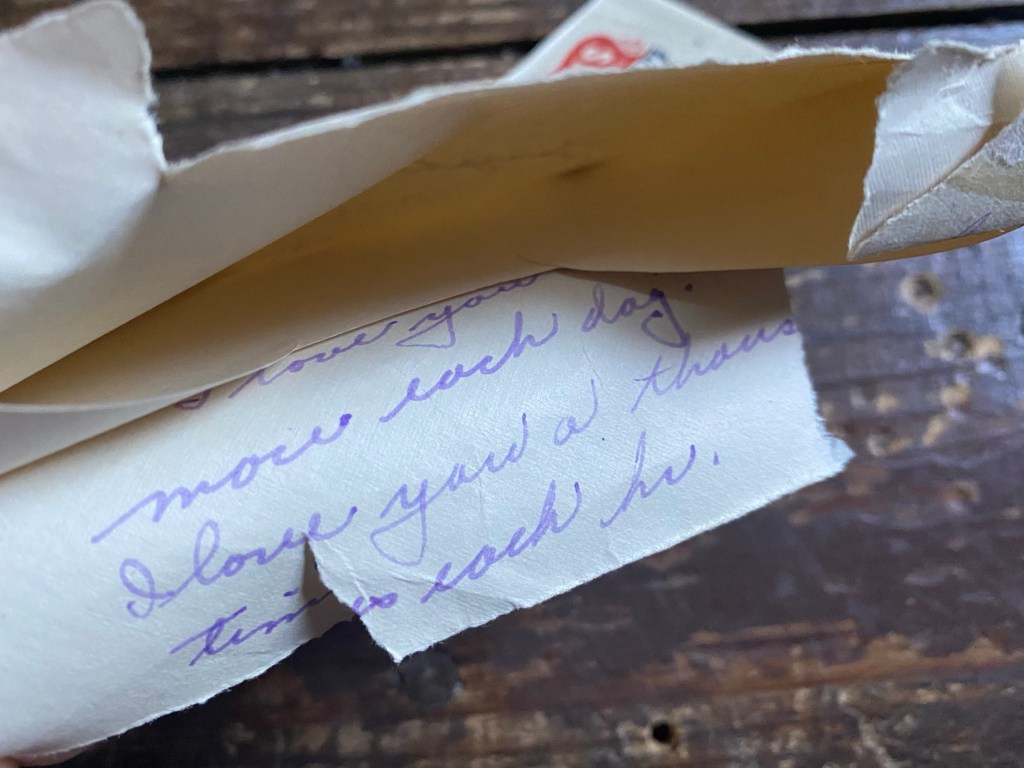 I love you
more each day.
I love you a thous
times each hr.